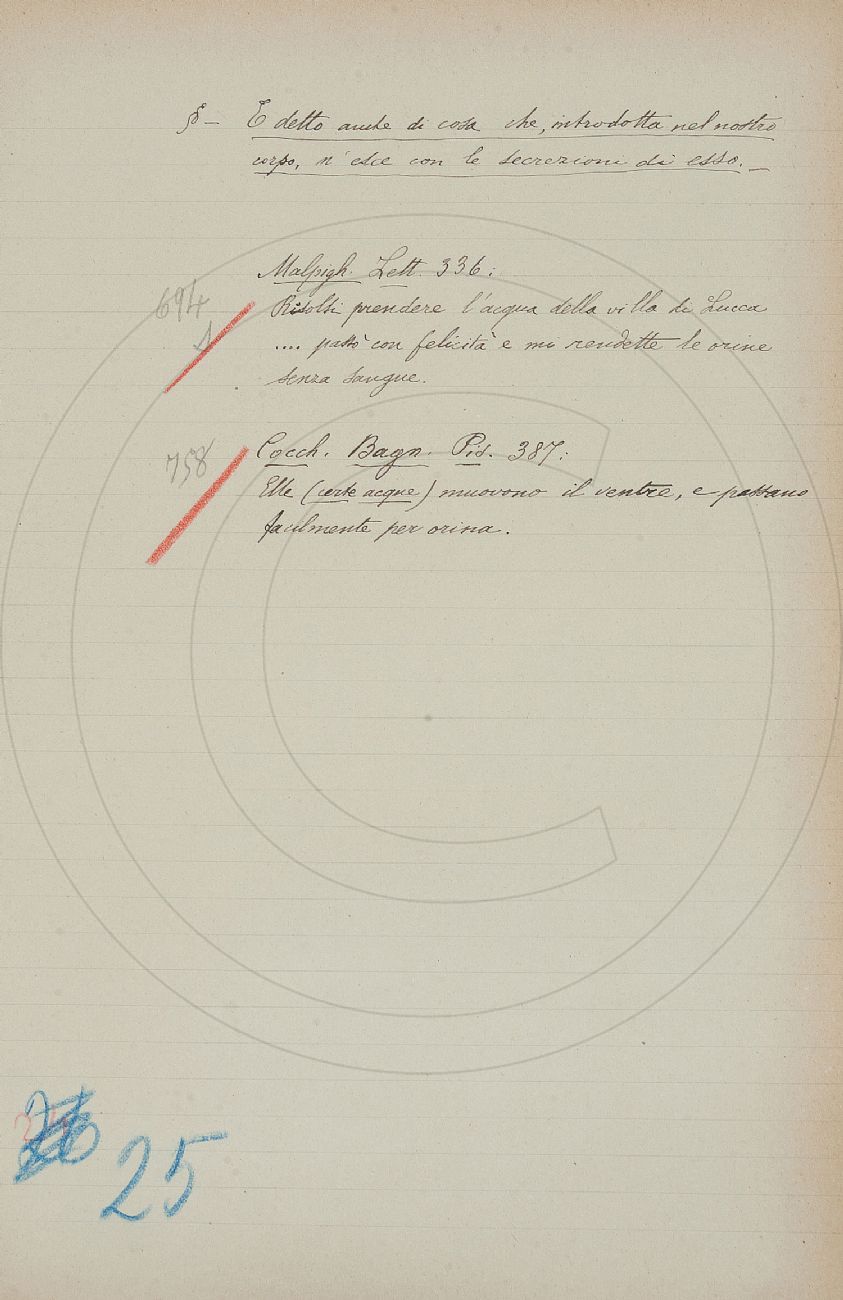 § – E detto anche di cosa che, introdotta nel nostro
corpo, n'esce con le secrezioni di esso. –
Malpigh. Lett. 336:
694
Risolsi prendere l'acqua della villa di Lucca
.... passò con felicità e mi rendette le orine
senza sangue.
758
Cocch. Bagn. Pis. 387:
Elle (certe acque) muovono il ventre, e passano
facilmente per orina.
25